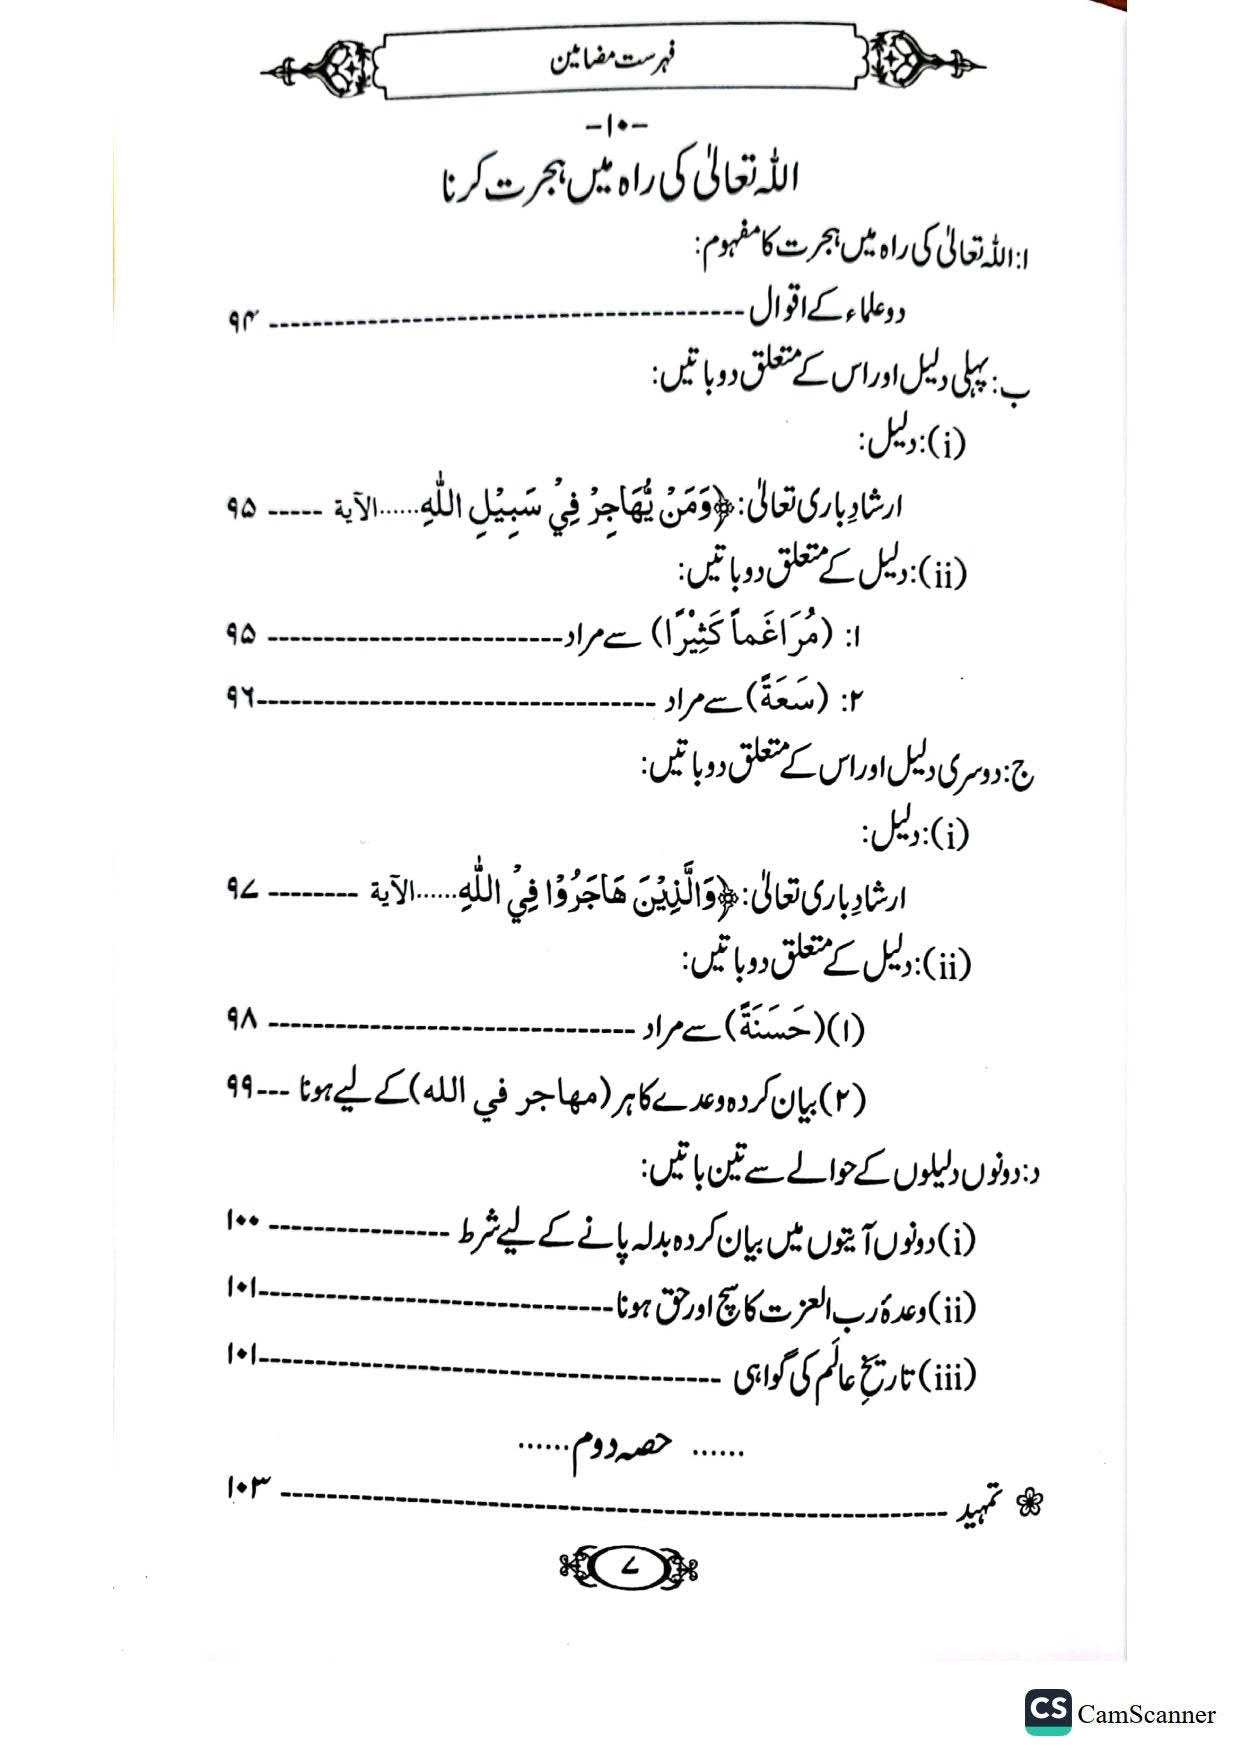 فہرست مضامین
-۱۰-
اللہ تعالیٰ کی راہ میں ہجرت کرنا
ا: اللہ تعالیٰ کی راہ میں ہجرت کا مفہوم:
دو علماء کے اقوال ------------------------------------------ ۹۴
ب: پہلی دلیل اور اس کے متعلق دو باتیں:
(i): دلیل:
ارشادِ باری تعالیٰ: ﴿وَمَنْ يُّهَاجِرْ فِيْ سَبِيْلِ اللّٰهِ......الآية ----- ۹۵
(ii): دلیل کے متعلق دو باتیں:
۱: (مُرَاغَماً كَثِيْرًا) سے مراد -------------------------- ۹۵
۲: (سَعَةً) سے مراد ----------------------------------- ۹۶
ج: دوسری دلیل اور اس کے متعلق دو باتیں:
(i): دلیل:
ارشادِ باری تعالیٰ: ﴿وَالَّذِيْنَ هَاجَرُوْا فِيْ اللّٰهِ......الآية -------- ۹۷
(ii): دلیل کے متعلق دو باتیں:
(۱) (حَسَنَةً) سے مراد -------------------------------- ۹۸
(۲) بیان کردہ وعدے کا ہر (مهاجر في الله) کے لیے ہونا --- ۹۹
د: دونوں دلیلوں کے حوالے سے تین باتیں:
(i) دونوں آیتوں میں بیان کردہ بدلہ پانے کے لیے شرط ---------------- ۱۰۰
(ii) وعدۂ رب العزت کا سچ اور حق ہونا ------------------------------- ۱۰۱
(iii) تاریخِ عالَم کی گواہی ---------------------------------------- ۱۰۱
...... حصہ دوم ......
❀ تمہید ---------------------------------------------------------- ۱۰۳
۷
CS CamScanner